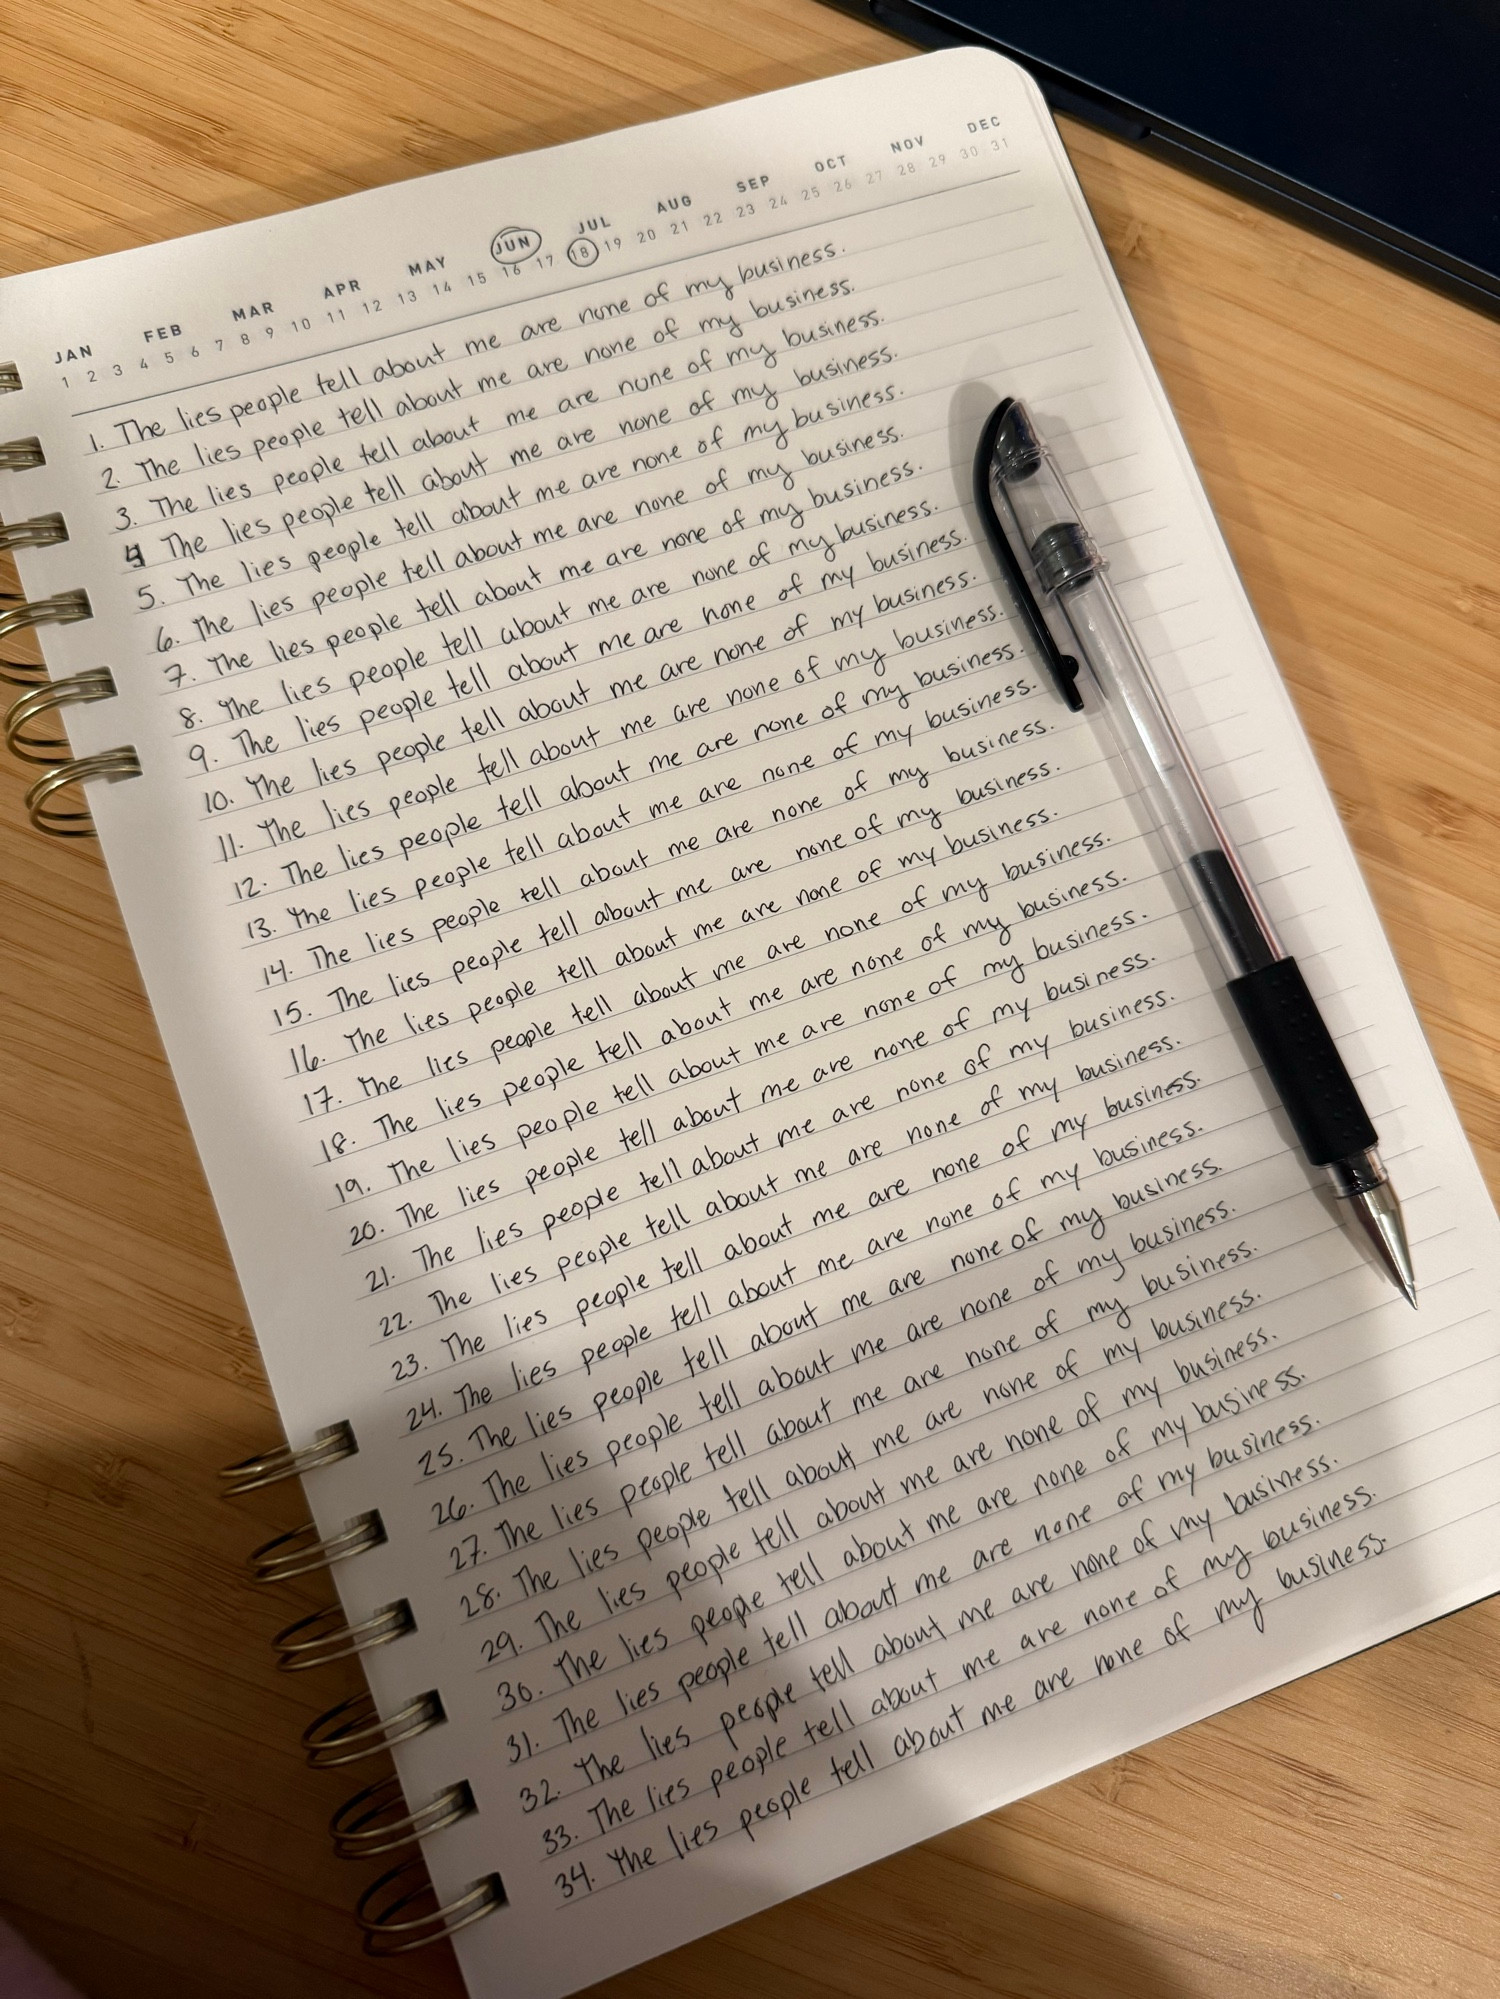 JAN FEB MAR APR MAY JUN JUL AUG SEP OCT NOV DEC
1 2 3 4 5 6 7 8 9 10 11 12 13 14 15 16 17 18 19 20 21 22 23 24 25 26 27 28 29 30 31
1. The lies people tell about me are none of my business.
2. The lies people tell about me are none of my business.
3. The lies people tell about me are none of my business.
4 The lies people tell about me are none of my business.
5. The lies people tell about me are none of my business.
6. The lies people tell about me are none of my business.
7. The lies people tell about me are none of my business.
8. The lies people tell about me are none of my business.
9. The lies people tell about me are none of my business.
10. The lies people tell about me are none of my business.
11. The lies people tell about me are none of my business.
12. The lies people tell about me are none of my business.
13. The lies people tell about me are none of my business.
14. The lies people tell about me are none of my business.
15. The lies people tell about me are none of my business.
16. The lies people tell about me are none of my business.
17. The lies people tell about me are none of my business.
18. The lies people tell about me are none of my business.
19. The lies people tell about me are none of my business.
20. The lies people tell about me are none of my business.
21. The lies people tell about me are none of my business.
22. The lies people tell about me are none of my business.
23. The lies people tell about me are none of my business.
24. The lies people tell about me are none of my business.
25. The lies people tell about me are none of my business.
26. The lies people tell about me are none of my business.
27. The lies people tell about me are none of my business.
28. The lies people tell about me are none of my business.
29. The lies people tell about me are none of my business.
30. The lies people tell about me are none of my business.
31. The lies people tell about me are none of my business.
32. The lies people tell about me are none of my business.
33. The lies people tell about me are none of my business.
34. The lies people tell about me are none of my business.